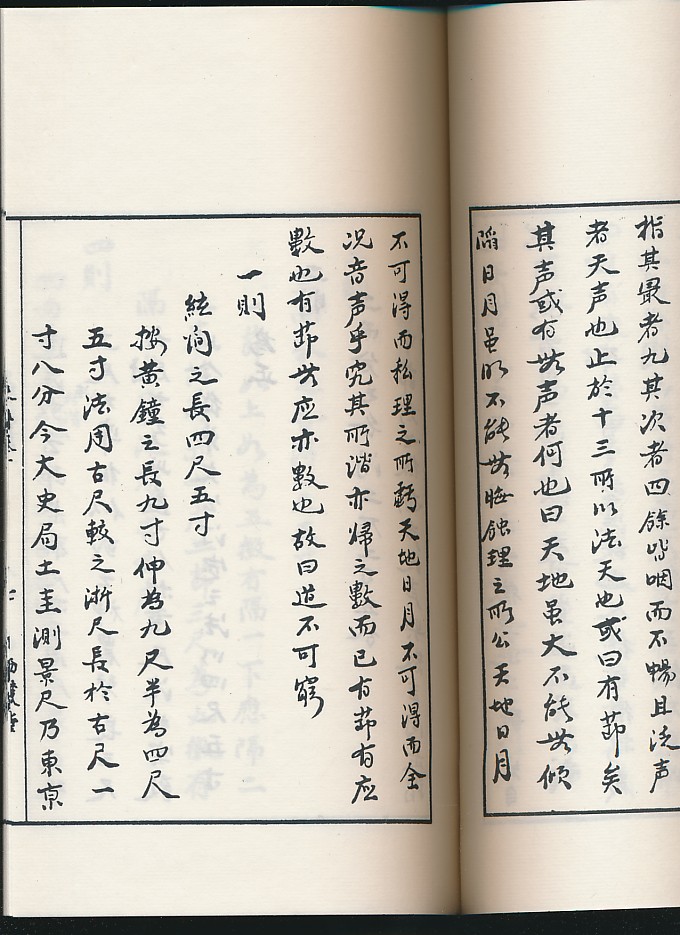 指其最者九其次者四餘皆咽而不暢且泛声
者天声也止於十三所以法天也或曰有節矣
其声或有無声者何也曰天地虽大不能無傾
陷日月虽明不能無晦蝕理之所公天地日月
不可得而私理之所虧天地日月不可得而全
况音声乎究其所谐亦歸之數而已有節有应
數也有節無应亦數也故曰道不可窮
一則
絃间之長四尺五寸
按黄鐘之長九寸伸為九尺半為四尺
五寸法用古尺較之浙尺長於古尺一
寸八分今大史局土圭測景尺乃東京